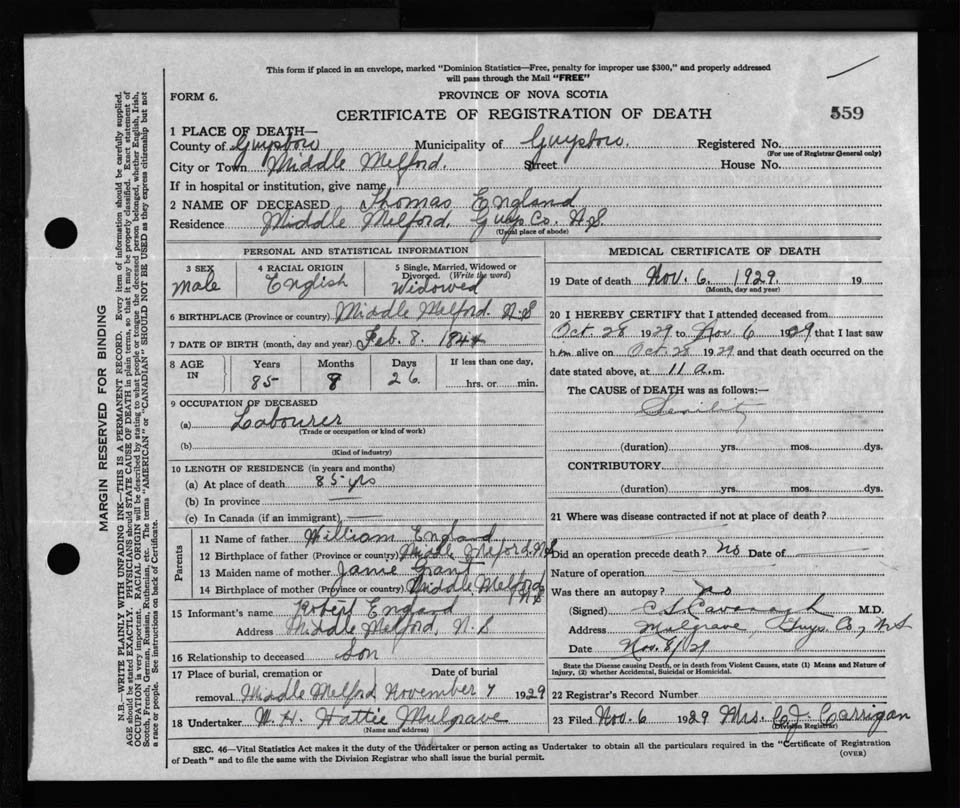 This form if placed in an envelope, marked "Dominion Statistics—Free, penalty for improper use $300," and properly addressed
will pass through the Mail "FREE"
FORM 6.
PROVINCE OF NOVA SCOTIA
CERTIFICATE OF REGISTRATION OF DEATH
559
1 PLACE OF DEATH—
County of Guysboro Municipality of Guysboro. Registered No.
(For use of Registrar General only)
City or Town Middle Melford. Street House No.
If in hospital or institution, give name
2 NAME OF DECEASED Thomas England
Residence Middle Melford, Guys Co. N.S.
(Usual place of abode)
PERSONAL AND STATISTICAL INFORMATION
3 SEX 4 RACIAL ORIGIN 5 Single, Married, Widowed or
Divorced. (Write the word)
Male English Widowed
6 BIRTHPLACE (Province or country) Middle Melford. N.S
7 DATE OF BIRTH (month, day and year) Feb. 8. 1844
8 AGE IN Years Months Days If less than one day,
85 8 26 hrs. or min.
9 OCCUPATION OF DECEASED
(a) Labourer
(Trade or occupation or kind of work)
(b)
(Kind of industry)
10 LENGTH OF RESIDENCE (in years and months)
(a) At place of death 85 yrs
(b) In province —
(c) In Canada (if an immigrant) —
Parents
11 Name of father William England
12 Birthplace of father (Province or country) Middle Meford. N.S
13 Maiden name of mother Janie Grant
14 Birthplace of mother (Province or country) Middle Melford N.S
15 Informant's name Robert England
Address Middle Melford, N.S
16 Relationship to deceased Son
17 Place of burial, cremation or Date of burial
removal Middle Melford November 7 1929
18 Undertaker W. H. Hattie Mulgrave
(Name and address)
MEDICAL CERTIFICATE OF DEATH
19 Date of death Nov. 6. 1929. 19
(Month, day and year)
20 I HEREBY CERTIFY that I attended deceased from
Oct. 28 1929 to Nov 6 1929 that I last saw
him alive on Oct. 28 1929 and that death occurred on the
date stated above, at 11 a.m.
The CAUSE of DEATH was as follows:—
(duration) yrs. mos. dys.
CONTRIBUTORY
(duration) yrs. mos. dys.
21 Where was disease contracted if not at place of death?
Did an operation precede death? No Date of
Nature of operation
Was there an autopsy? no
(Signed) Cavanagh M.D.
Address Mulgrave, Guys. Co., N.S
Date Nov. 8/29
State the Disease causing Death, or in death from Violent Causes, state (1) Means and Nature of
Injury, (2) whether Accidental, Suicidal or Homicidal.
22 Registrar's Record Number
23 Filed Nov. 6 1929 Mrs. C.J. Carrigan
(Division Registrar)
SEC. 46—Vital Statistics Act makes it the duty of the Undertaker or person acting as Undertaker to obtain all the particulars required in the "Certificate of Registration
of Death" and to file the same with the Division Registrar who shall issue the burial permit.
(OVER)
MARGIN RESERVED FOR BINDING
N.B.—WRITE PLAINLY WITH UNFADING INK—THIS IS A PERMANENT RECORD. Every item of information should be carefully supplied.
AGE should be stated EXACTLY. PHYSICIANS should STATE CAUSE OF DEATH in plain terms, so that it may be properly classified. Exact statement of
OCCUPATION is very important. RACIAL ORIGIN will be described by stating to what people or tongue the deceased person belonged, whether English, Irish,
Scotch, French, German, Russian, Ruthenian, etc. The terms "AMERICAN" or "CANADIAN" SHOULD NOT BE USED as they express citizenship but not
a race or people. See instructions on back of Certificate.